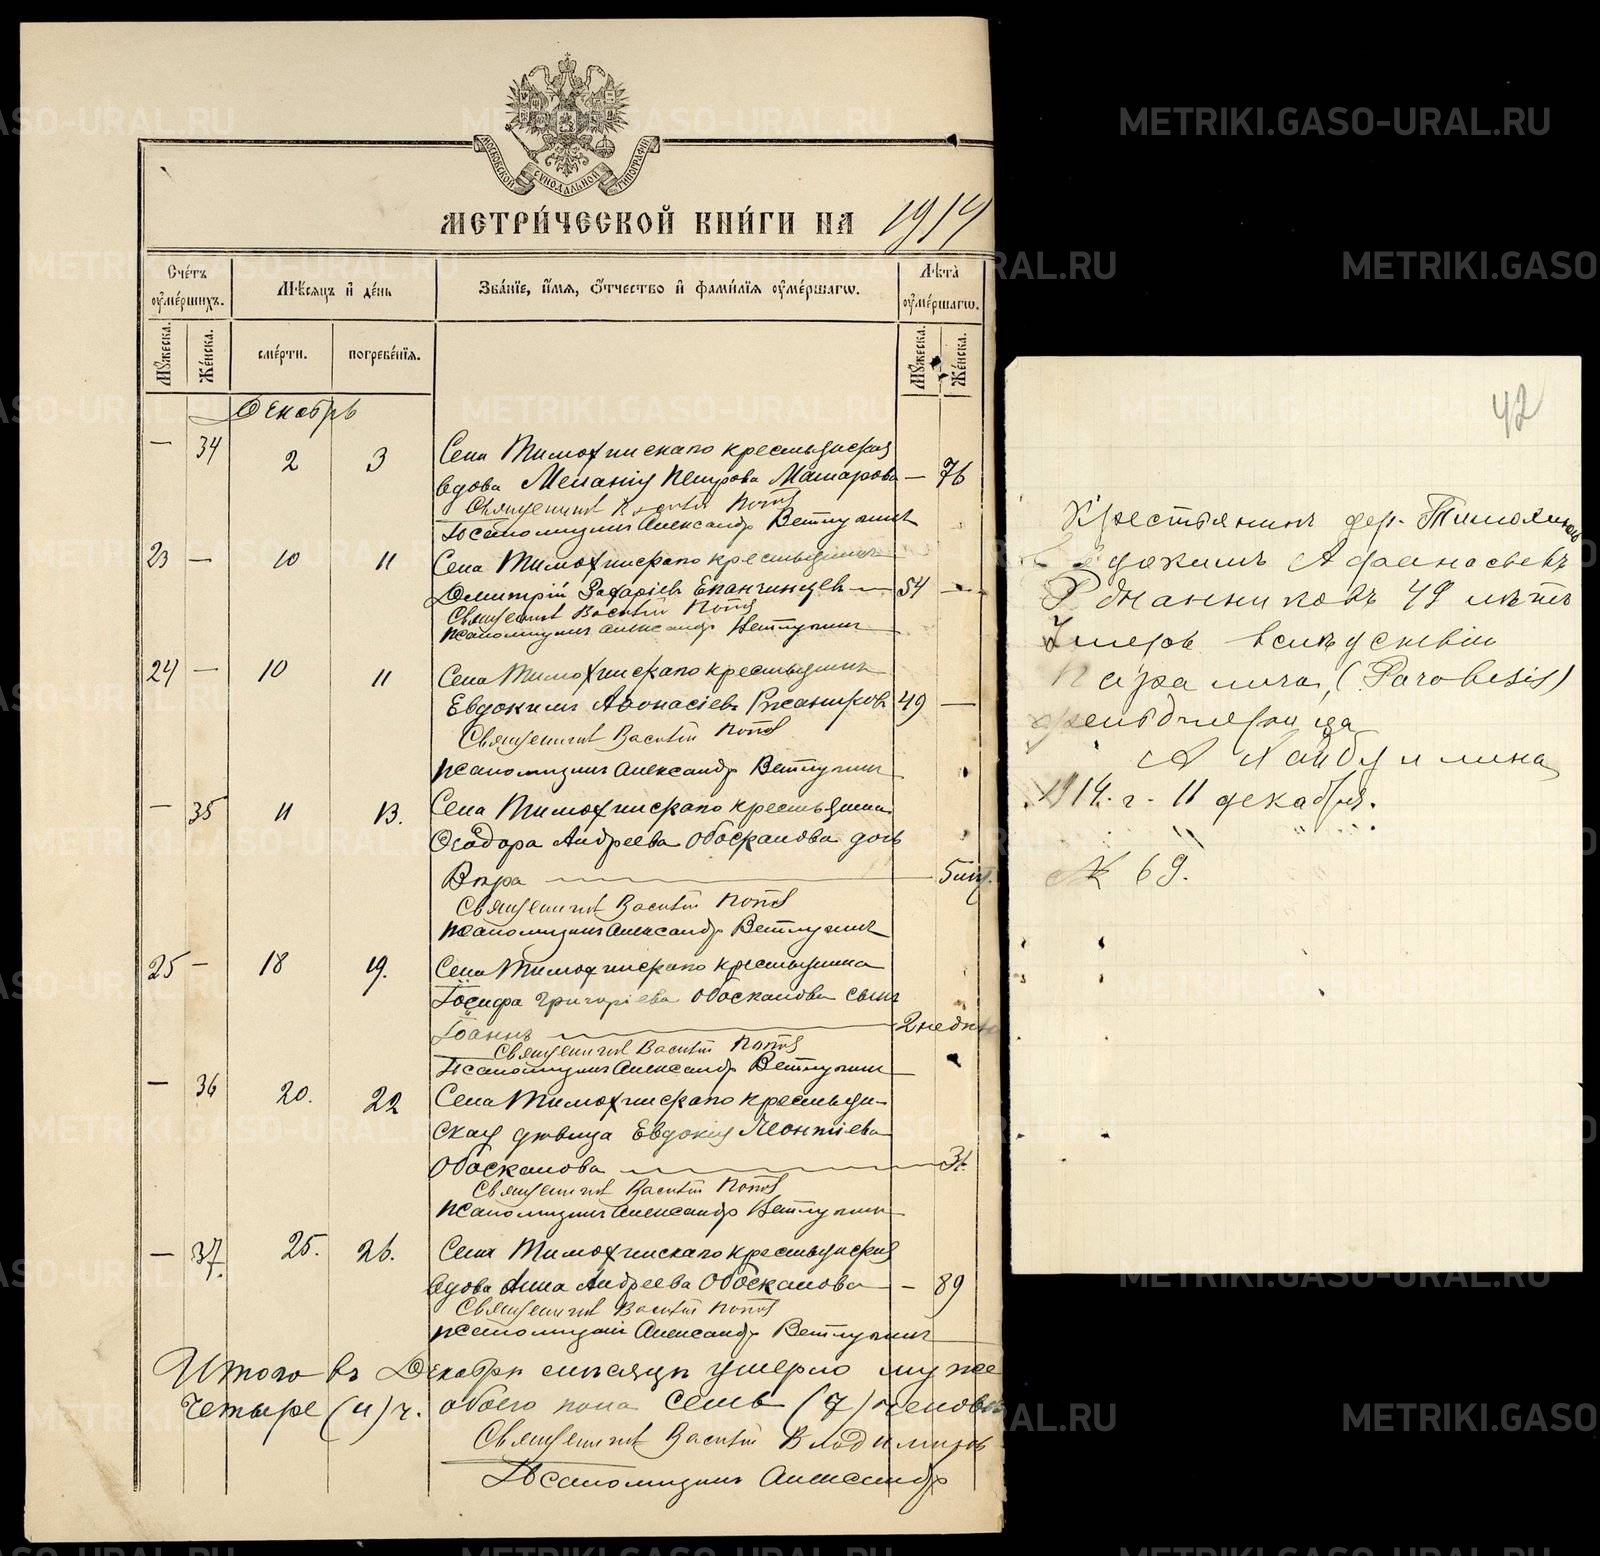 МОСКОВСКОЙ СѴНОДАЛЬНОЙ ТИПОГРАФІИ
МЕТРИ́ЧЕСКОЙ КНИ́ГИ НА 1914
Сче́тъ ᲂу҆ме́ршихъ.
Мѣ́сяцъ и҆ де́нь
Зва́нїе, и҆́мя, ѻ҆́тчество и҆ фами́лїя ᲂу҆ме́ршагѡ.
Лѣта̀ ᲂу҆ме́ршагѡ.
Мꙋ́жеска.
Же́нска.
сме́рти.
погребе́нїя.
Мꙋ́жеска.
Же́нска.
Декабрь
— 34 2 3 Села Тимохинскаго крестьянская
вдова Меланія Петрова Макарова — 76
Священникъ Василій Поповъ
Псаломщикъ Александръ Ветлугинъ
23 — 10 11 Села Тимохинскаго крестьянинъ
Димитрій Захаріевъ Епанчинцевъ 54 —
Священникъ Василій Поповъ
Псаломщикъ Александръ Ветлугинъ
24 — 10 11 Села Тимохинскаго крестьянинъ
Евдокимъ Афонасіевъ Ржанниковъ 49 —
Священникъ Василій Поповъ
Псаломщикъ Александръ Ветлугинъ
— 35 11 13. Села Тимохинскаго крестьянина
Ѳеодора Андреева Обоскалова дочь
Вѣра 5 мѣс.
Священникъ Василій Поповъ
Псаломщикъ Александръ Ветлугинъ
25 — 18 19. Села Тимохинскаго крестьянина
Іосифа Григоріева Обоскалова сынъ
Іоаннъ 2 недѣли
Священникъ Василій Поповъ
Псаломщикъ Александръ Ветлугинъ
— 36 20. 22 Села Тимохинскаго крестьян-
ская дѣвица Евдокія Леонтіева
Обоскалова 31.
Священникъ Василій Поповъ
Псаломщикъ Александръ Ветлугинъ
— 37. 25. 26. Села Тимохинскаго крестьянская
вдова Анна Андреева Обоскалова — 89
Священникъ Василій Поповъ
Псаломщикъ Александръ Ветлугинъ
Итого въ Декабрѣ мѣсяцѣ умерло муже
четыре (4) ч. обоего пола семь (7) человѣкъ
Священникъ Василій Владиміровъ
Псаломщикъ Александръ
42
Крестьянинъ дер. Тимохиной
Евдокимъ Афанасьевъ
Ржанниковъ 49 лѣтъ
Умеръ вслѣдствіи
Паралича,
фельдшерица
А Хайбулина
1914. г. 11 декабря.
№ 69.
METRIKI.GASO-URAL.RU